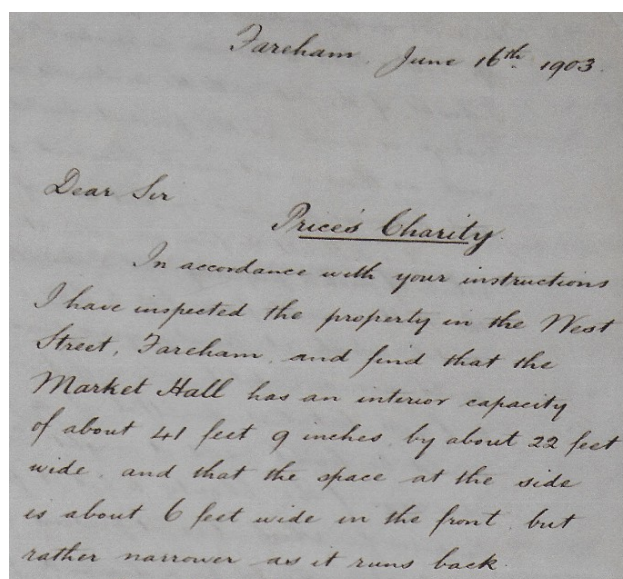 Fareham, June 16th 1903.
Dear Sir
Price's Charity.
In accordance with your instructions
I have inspected the property in the West
Street, Fareham, and find that the
Market Hall has an interior capacity
of about 41 feet 9 inches by about 22 feet
wide, and that the space at the side
is about 6 feet wide in the front but
rather narrower as it runs back.